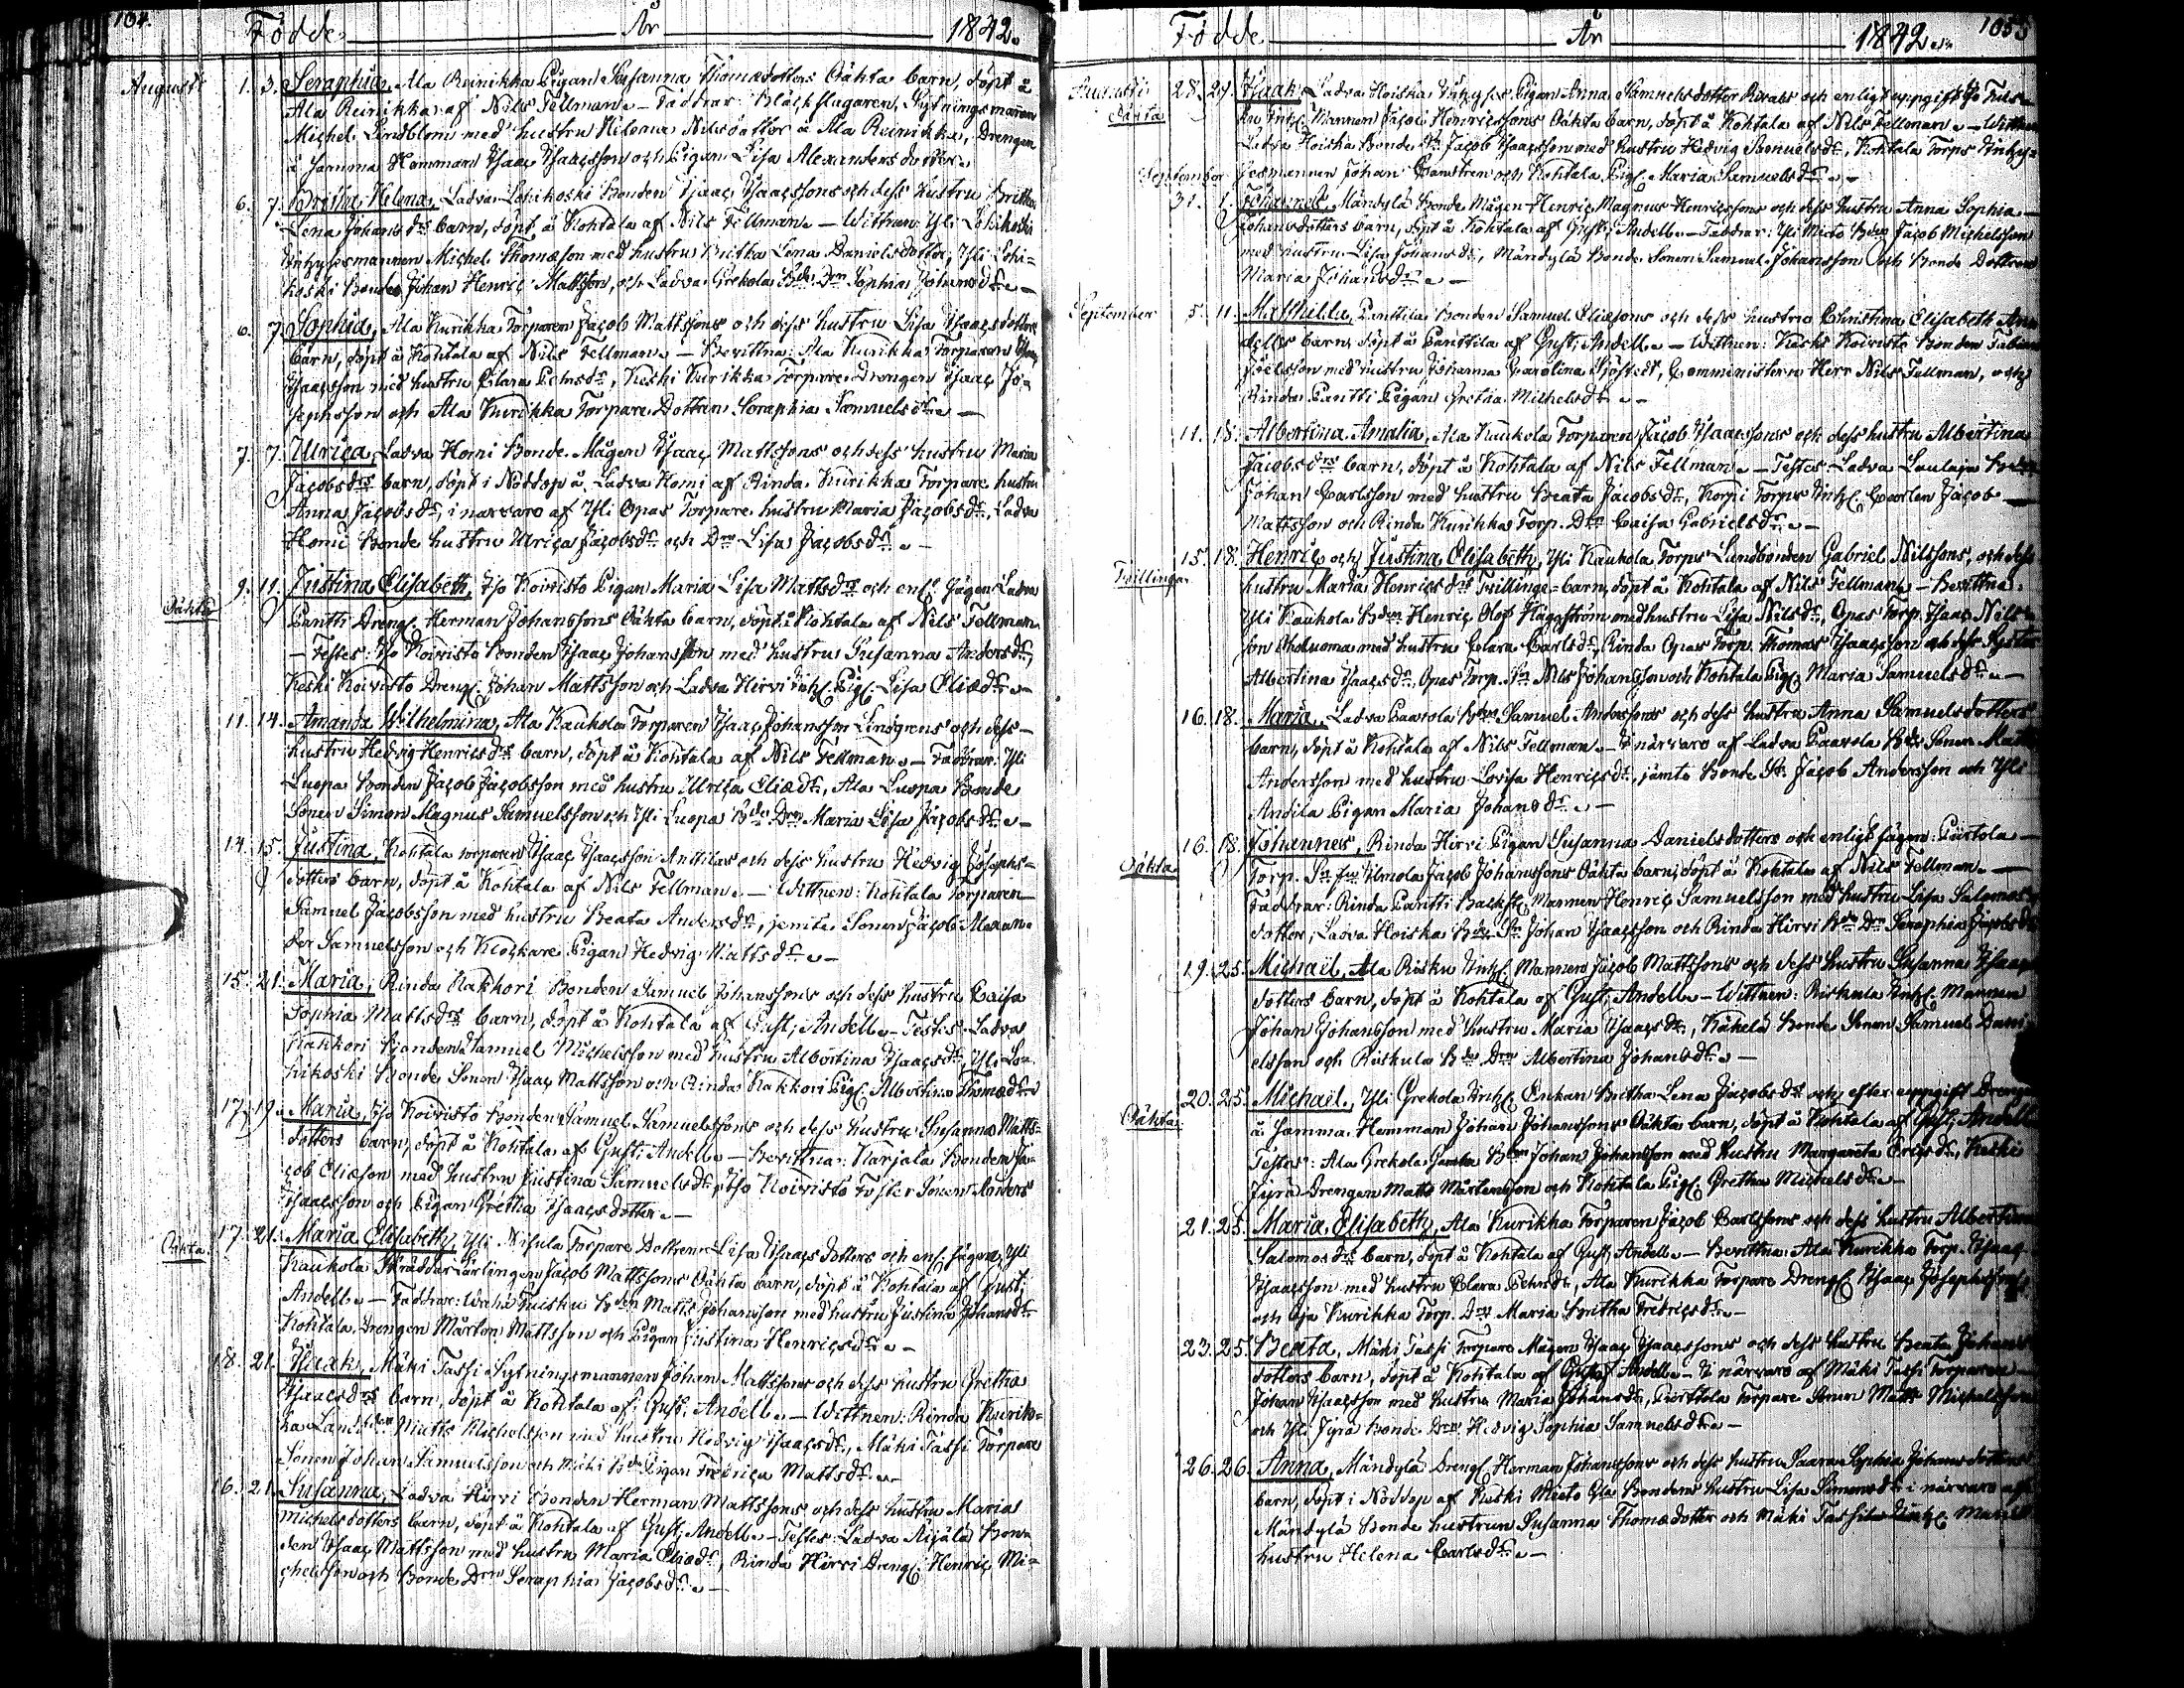 164.
Födde År 1842.
Augusti 1. 3. Seraphia, Ala Reinikka Pigan Susanna Thomædotters Oäkta barn, döpt å
Ala Reinikka af Nils Fellman. – Faddrar: Sytningsmannen
Michel Lindblom med hustru Helena Nilsdotter å Ala Reinikka, Drengen
å samma Hemman Isaac Isaacsson och Pigan Lisa Alexandersdotter. –
6. 7. Britha Helena, Ladva Lohikoski Bonden Isaac Isaacssons och dess hustru Britha
Lena Johansdrs barn, döpt å Kohtala af Nils Fellman. – Wittnen: Yli Lohikoski
Inhysesmannen Michel Thomæson med hustru Britha Lena Danielsdotter, Yli Lohi-
koski Bonden Johan Henric Mattsson, och Ladva Grekola Bde Drn Sophia Johansdr. –
6. 7. Sophia, Ala Kurikka Torparen Jacob Mattssons och dess hustru Lisa Isaacsdotters
barn, döpt å Kohtala af Nils Fellman. – Bevittna: Ala Kurikka Torparen Isaac
Isaacsson med hustru Clara Petersdr, Keski Kurikka Torpare Drengen Isaac Jo-
sephsson och Ala Kurikka Torpare Dottren Seraphia Samuelsdr. –
7. 7. Ulrica, Ladva Homi Bonde Mågen Isaac Mattssons och dess hustru Maria
Jacobsdrs barn, döpt i Nöddop å Ladva Homi af Rinda Kurikka Torpare hustru
Anna Jacobsdr, i närvaro af Yli Opas Torpare hustru Maria Jacobsdr, Ladva
Homi Bonde hustru Ulrica Jacobsdr och Drn Lisa Jacobsdr. –
Oäkta 9. 11. Justina Elisabeth, Iso Koivisto Pigan Maria Lisa Mattsdrs och enl. sägen Ladva
Pantti Dreng. Herman Johanssons Oäkta barn, döpt i Kohtala af Nils Fellman.
– Testes: Iso Koivisto Bonden Isaac Johansson med hustru Susanna Andersdr,
Keski Koivisto Dreng. Johan Mattsson och Ladva Hirvi Inh. Pig. Lisa Eliædr. –
11. 14. Amanda Wilhelmina, Ala Kauhola Torparen Isaac Johansson Lindgrens och dess
hustru Hedvig Henricsdrs barn, döpt å Kohtala af Nils Fellman. – Faddrar: Yli
Luopa Bonden Jacob Jacobsson med hustru Ulrica Eliædr, Ala Luopa Bonde
Sonen Simon Magnus Samuelsson och Yli Luopa Bde Drn Maria Lisa Jacobsdr. –
14. 15. Justina, Kohtala torparen Isaac Isaacsson Anttilas och dess hustru Hedvig Josephs-
dotters barn, döpt å Kohtala af Nils Fellman. – Wittnen: Kohtala Torparen
Samuel Jacobsson med hustru Beata Andersdr, jemte Sonen Jacob Alexan-
der Samuelsson och Klockare Pigan Hedvig Mattsdr. –
15. 21. Maria, Rinda Kakkori Bonden Samuel Johanssons och dess hustru Caisa
Sophia Mattsdrs barn, döpt å Kohtala af Gust: Andell. – Testes: Ladva
Kakkori Bonden Samuel Michelsson med hustru Albertina Isaacsdr, Yli Lo-
hikoski Bonde Sonen Isaac Mattsson och Rinda Kakkori Pig. Albertina Thomædr.
17. 19. Maria, Iso Koivisto Bonden Samuel Samuelssons och dess hustru Susanna Matts-
dotters barn, döpt å Kohtala af Gust: Andell. – Bevittna: Karjala Bonden Ja-
cob Eliæson med hustru Justina Samuelsdr, Iso Koivisto Foster Sonen Anders
Isaacsson och Pigan Gretha Isaacsdotter. –
Oäkta 17. 21. Maria Elisabeth, Yli Nisula Torpare Dottren Lisa Isaacsdotters och enl. sägen, Yli
Kauhola Skräddar Lärlingen Jacob Mattssons Oäkta barn, döpt å Kohtala af Gust:
Andell. – Faddrar: Tuisku Bden Matts Johansson med hustru Justina Johansdr
Kohtala Drengen Mårten Mattsson och Pigan Justina Henricsdr. –
18. 21. Isaak, Mäki Tassi Sytningsmannen Johan Mattssons och dess hustru Gretha
Isaacsdrs barn, döpt å Kohtala af Gust: Andell. – Wittnen: Rinda Kurik-
ka Landbden Matts Michelsson med hustru Hedvig Isaacsdr, Mäki Tassi Torpare
Sonen Johan Samuelsson och Mäki Bde Pigan Fredrica Mattsdr. –
16. 21. Susanna, Ladva Hirvi Bonden Herman Mattssons och dess hustru Maria
Michelsdotters barn, döpt å Kohtala af Gust: Andell. – Testes: Ladva Bon-
den Isaac Mattsson med hustru Maria Eliædr, Rinda Hirvi Dreng. Henric Mi-
chelsson och Bonde Drn Seraphia Jacobsdr. –
Födde År 1842. 165
Augusti 28. 29. Isaak, Ladva Hoiska Inhyses Pigan Anna Samuelsdotter och enligt uppgift
Inh. Mannen Jacob Henricssons Oäkta barn, döpt å Kohtala af Nils Fellman. – Wittnen
Oäkta
Ladva Hoiska Bonde Sn Jacob Isaacsson med hustru Hedvig Samuelsdr, Kohtala Torps Inhy-
sesmannen Johan och Kohtala Pig. Maria Samuelsdr. –
September
31. 1. Johannes, Mändylä Bonde Mågen Henric Magnus Henricssons och dess hustru Anna Sophia
Johansdotters barn, döpt å Kohtala af Gust: Andell. – Faddrar: Yli Mieto Bden Jacob Michelsson
med hustru Lisa Johansdr, Mändylä Bonde Sonen Samuel Johansson och Bonde Dottren
Maria Johansdr. –
September 5. 11. Mathilda, Panttila Bonden Samuel Eliæsons och dess hustru Christina Elisabeth An-
dells barn, döpt å Panttila af Gust: Andell. – Wittnen: Keski Koivisto Bonden Fabian
Joelsson med hustru Johanna Carolina Sjöstedt, Comministern Herr Nils Fellman, och
Rinda Pantti Pigan Gretha Michelsdr. –
11. 18. Albertina Amalia, Ala Kauhola Torparen Jacob Isaacssons och dess hustru Albertina
Jacobsdrs barn, döpt å Kohtala af Nils Fellman. – Testes: Ladva Laulaja Bden
Johan Carlsson med hustru Beata Jacobsdr, Korpi Torps Inh. Carlen Jacob
Mattsson och Rinda Kurikka Torp. Drn Caisa Gabrielsdr. –
Tvillingar 15. 18. Henric och Justina Elisabeth, Yli Kauhola Torps Landbonden Gabriel Nilssons, och dess
hustru Maria Henricsdrs Tvillinge-barn, döpt å Kohtala af Nils Fellman. – Bevittna:
Yli Kauhola Bden Henric Olof Häggström med hustru Lisa Nilsdr, Opas Torp. Isaac Nils-
son med hustru Clara Carlsdr, Rinda Opas Torp. Thomas Isaacsson och dess Syster
Albertina Isaacsdr, Opas Torp. Sn Nils Johansson och Kohtala Pig. Maria Samuelsdr. –
16. 18. Maria, Ladva Paavola Bden Samuel Anderssons och dess hustru Anna Samuelsdotters
barn, döpt å Kohtala af Nils Fellman. – I närvaro af Ladva Paavola Bde Sonen Matts
Andersson med hustru Lovisa Henricsdr, jämte Bonde Sn. Jacob Andersson och Yli
Andila Pigan Maria Johansdr. –
Oäkta 16. 18. Johannes, Rinda Hirvi Pigan Susanna Danielsdotters och enligt sägen: Pärtola
Torp. Sn fr. Ilmola Jacob Johanssons Oäkta barn, döpt å Kohtala af Nils Fellman. –
Faddrar: Rinda Pantti Backst. Mannen Henric Samuelsson med hustru Lisa Salomons-
dotter, Ladva Hoiska Bde Sn Johan Isaacsson och Rinda Hirvi Bde Drn Seraphia Jacobsdr
19. 25. Michaël, Ala Risku Inh. Mannen Jacob Mattssons och dess hustru Susanna Isaacs-
dotters barn, döpt å Kohtala af Gust: Andell. – Wittnen: Riskula Inh. Mannen
Johan Johansson med hustru Maria Isaacsdr, Käkelä Bonde Sonen Samuel Dani-
elsson och Riskula Bde Drn Albertina Johansdr. –
Oäkta 20. 25. Michaël, Yli Grekola Inh. Enkan Britha Lena Jacobsdrs och efter uppgift Drengen
å samma Hemman Johan Johanssons Oäkta barn, döpt å Kohtala af Gust: Andell.
Testes: Ala Grekola Gamla Bden Johan Johansson med hustru Margareta Ericsdr, Keski
Jyrä Drengen Matts Mårtensson och Kohtala Pig. Gretha Michelsdr. –
21. 25. Maria Elisabeth, Ala Kurikka Torparen Jacob Carlssons och dess hustru Albertina
Salomonsdrs barn, döpt å Kohtala af Gust: Andell. – Bevittna: Ala Kurikka Torp. Isaac
Isaacsson med hustru Clara Petersdr, Ala Kurikka Torpare Dreng. Isaac Josephsson
och Kurikka Torp. Drn Maria Britha Fredricsdr. –
23. 25. Beata, Mäki Tassi Torpare Mågen Isaac Isaacssons och dess hustru Beata Johans-
dotters barn, döpt å Kohtala af Gustaf Andell. – I närvaro af Mäki Tassi Torparen
Johan Isaacsson med hustru Maria Johansdr, Torpare Sonen Matts Michelsson
och Yli Jyrä Bonde Drn Hedvig Sophia Samuelsdr. –
26. 26. Anna, Mändylä Dreng. Herman Johanssons och dess hustru Saara Sophia Johansdotters
barn, döpt i Nöddop af Keski Mieto Gla Bondens hustru Lisa Simonsdr i närvaro af
Mändylä Bonde hustrun Susanna Thomædotter och Mäki Tassi Inh. Mannens
hustru Helena Carlsdr. –